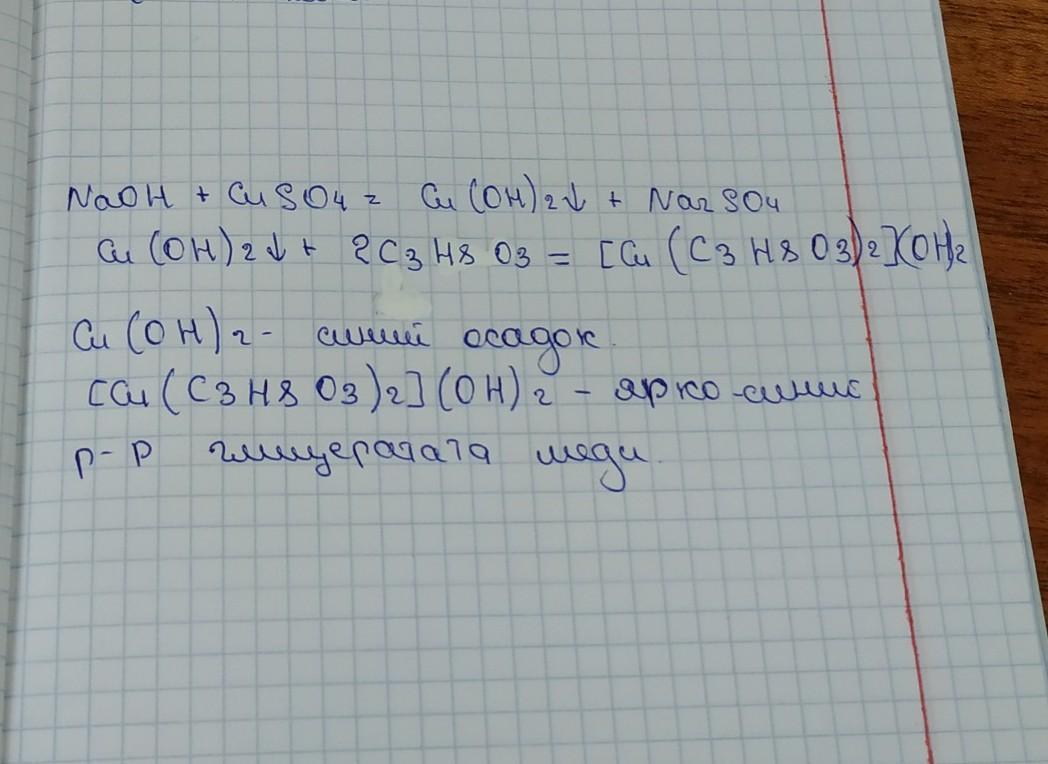 NaOH + CuSO4 = Cu(OH)2↓ + Na2SO4
Cu(OH)2↓ + 2C3H8O3 = [Cu(C3H8O3)2](OH)2
Cu(OH)2 - синий осадок.
[Cu(C3H8O3)2](OH)2 - ярко-синис
р-р глицератата меди.